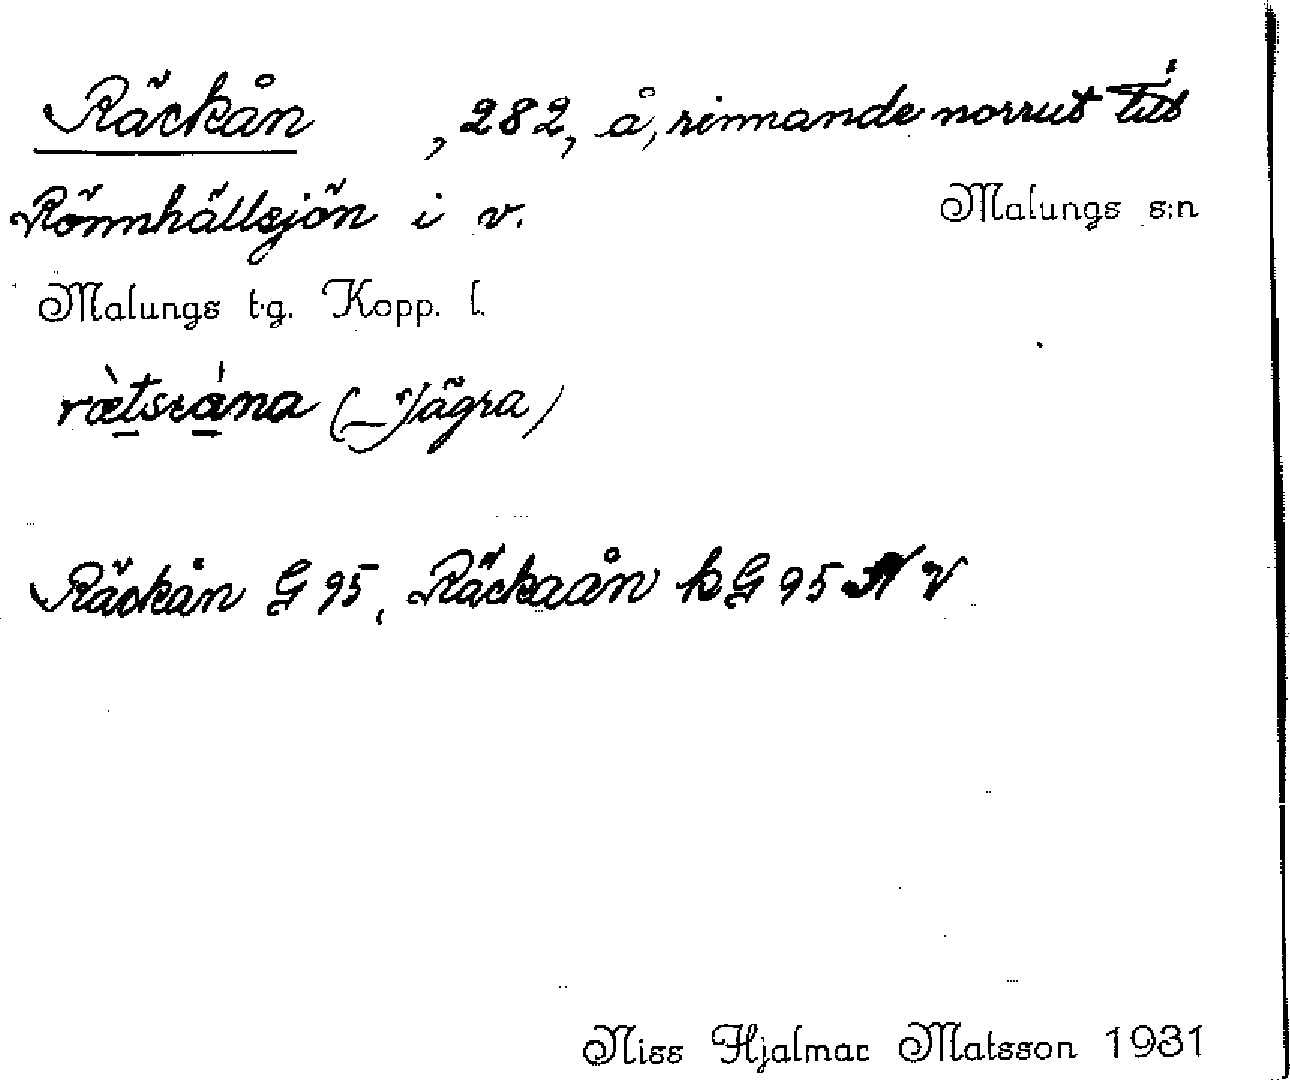 Räckån , 282, å, rinnande norrut till
Rönnhällsjön i v. Malungs s:n
Malungs t.g. Kopp. l.
rætsrána (Jägra)
Räckån G 95, Räckaån k G 95 N V
Niss Hjalmar Matsson 1931